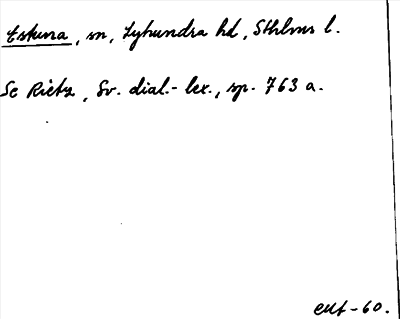 Eskuna, sn, Lyhundra hd, Sthlms l.
Se Rietz, Sv. dial.-lex., sp. 763 a.
-60.